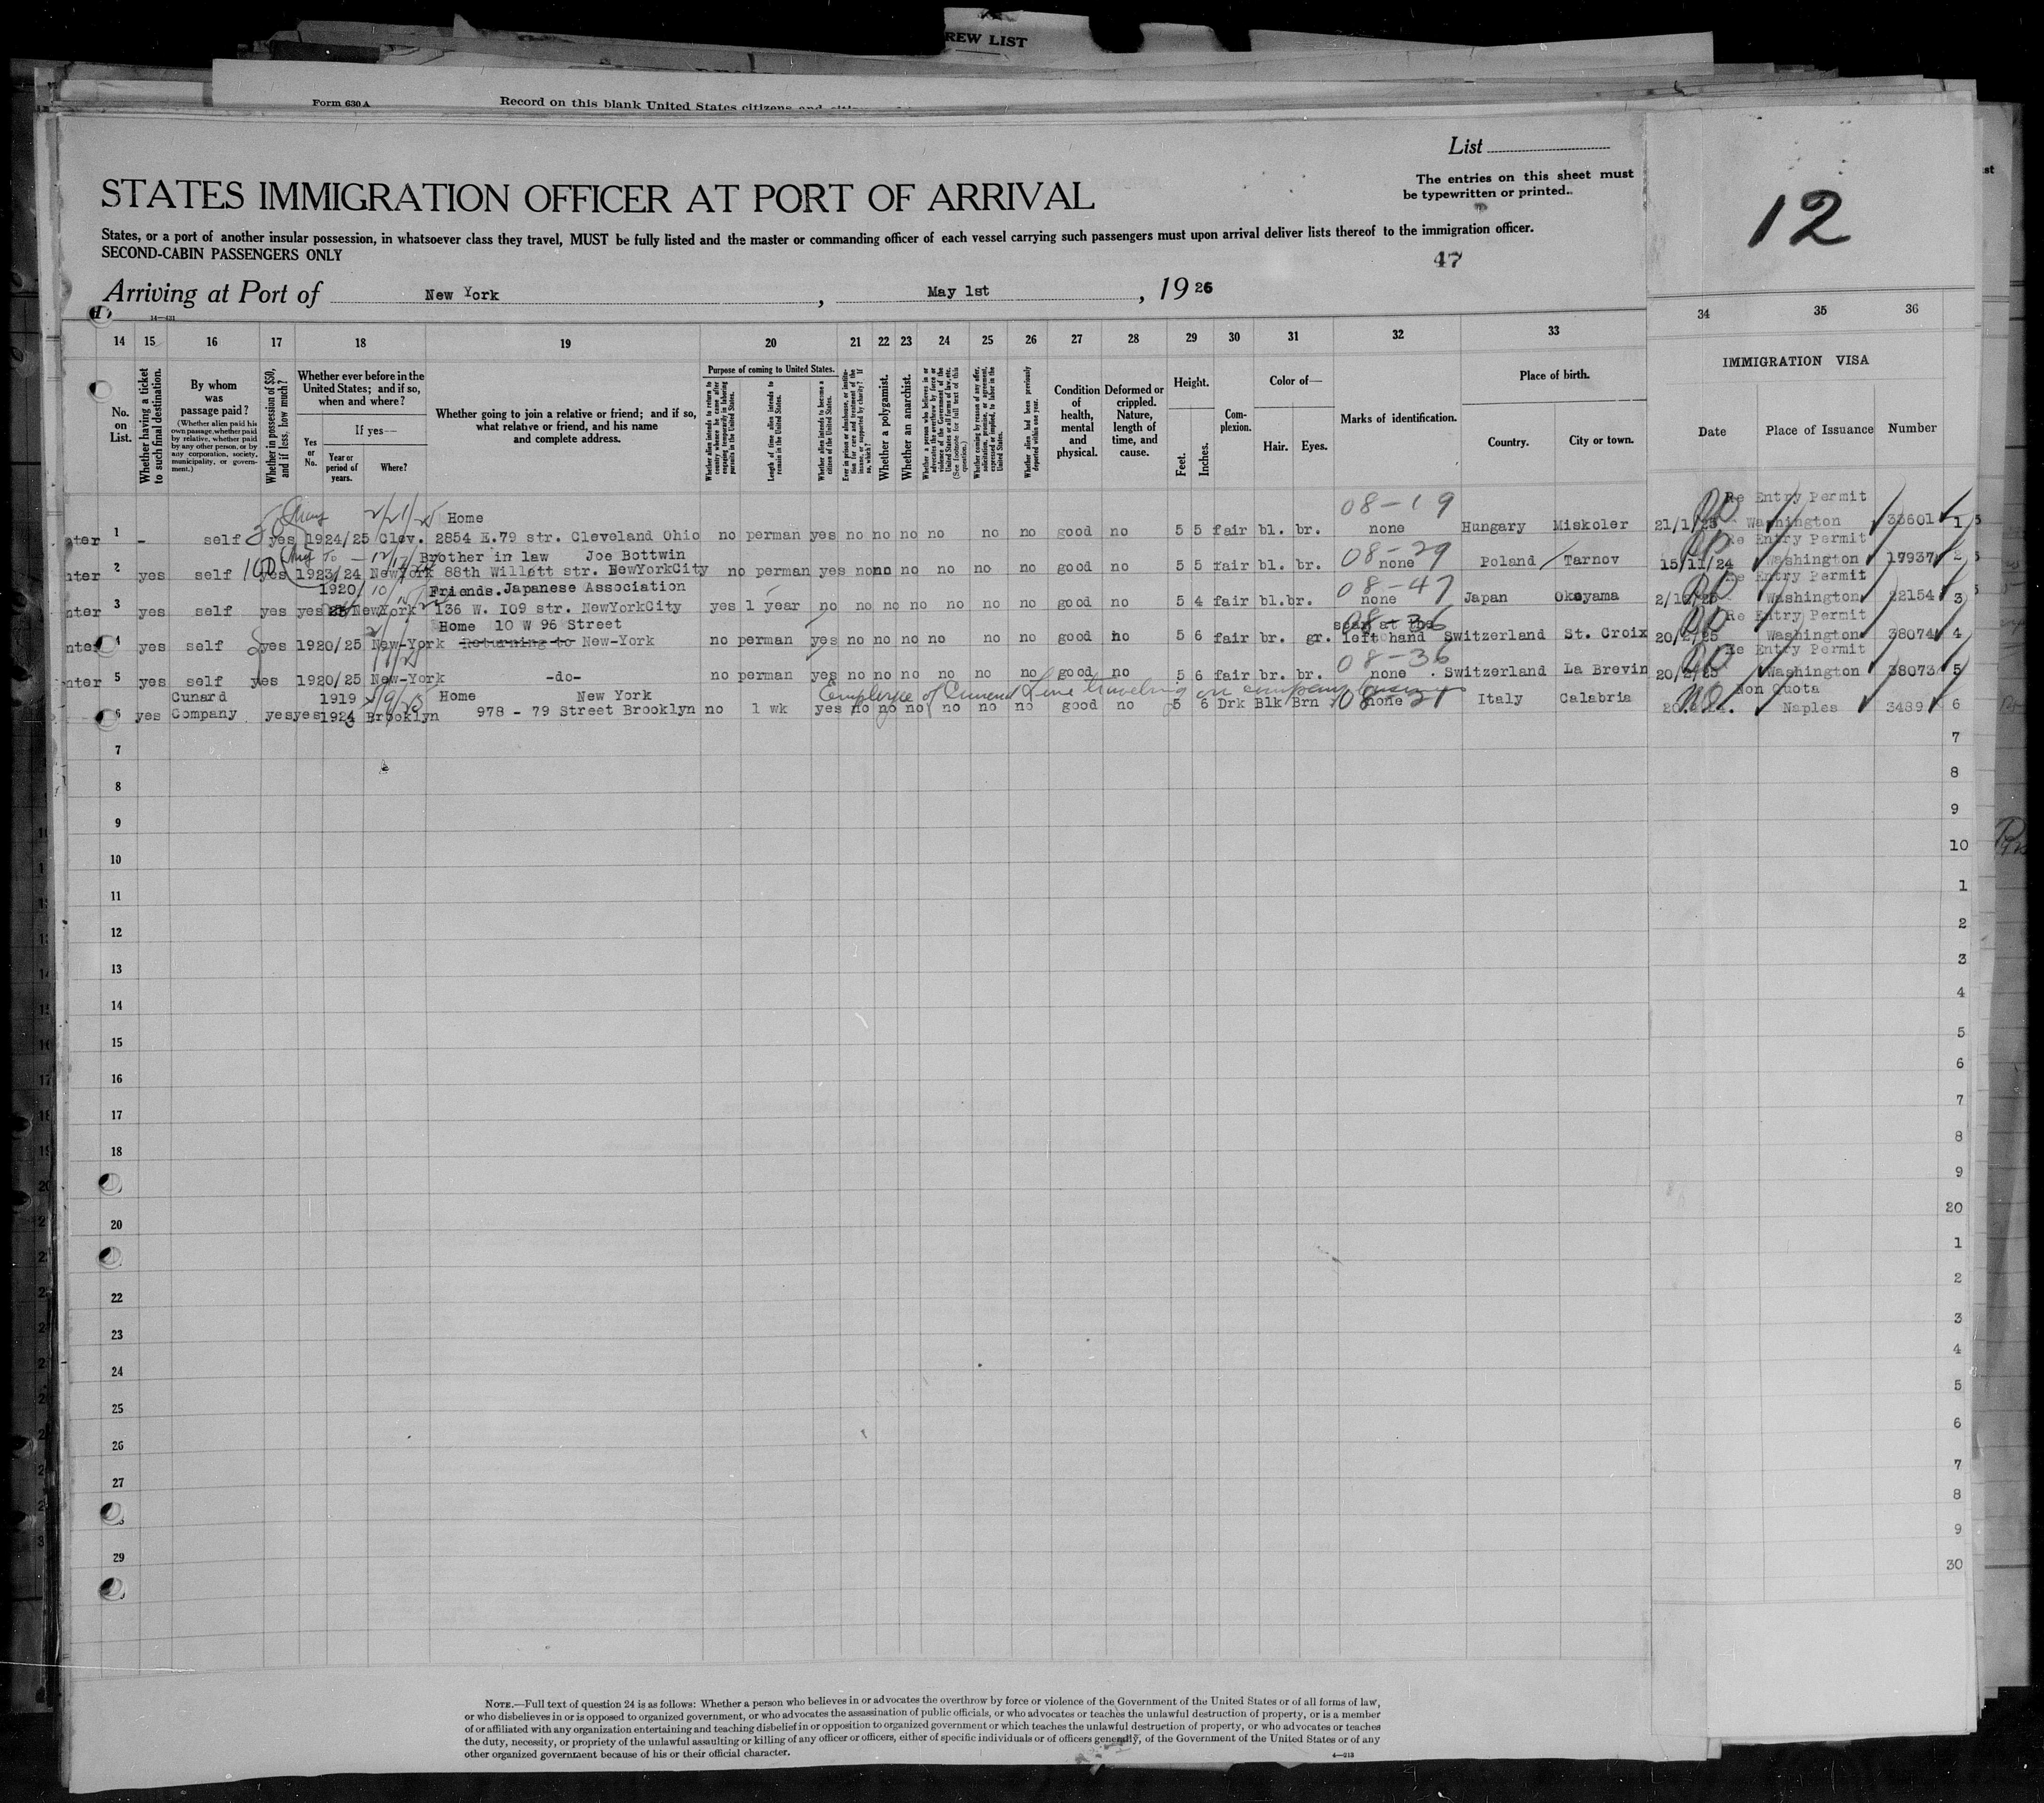 REW LIST
Form 630 A
Record on this blank United States citizens and
List
The entries on this sheet must
be typewritten or printed.
STATES IMMIGRATION OFFICER AT PORT OF ARRIVAL
12
States, or a port of another insular possession, in whatsoever class they travel, MUST be fully listed and the master or commanding officer of each vessel carrying such passengers must upon arrival deliver lists thereof to the immigration officer.
SECOND-CABIN PASSENGERS ONLY
47
Arriving at Port of New York, May 1st, 1926
14 15 16 17 18 19 20 21 22 23 24 25 26 27 28 29 30 31 32 33 34 35 36
No. on List.
Whether having a ticket to such final destination.
By whom was passage paid?
(Whether alien paid his own passage, whether paid by relative, whether paid by any other person, or by any corporation, society, municipality, or government.)
Whether in possession of $50, and if less, how much?
Whether ever before in the United States; and if so, when and where?
Yes or No.
If yes—
Year or period of years.
Where?
Whether going to join a relative or friend; and if so, what relative or friend, and his name and complete address.
Purpose of coming to United States.
Whether alien intends to return to country whence he came after engaging temporarily in laboring pursuits in the United States.
Length of time alien intends to remain in the United States.
Whether alien intends to become a citizen of the United States.
Ever in prison or almshouse, or institution for care and treatment of the insane, or supported by charity? If so, which?
Whether a polygamist.
Whether an anarchist.
Whether a person who believes in or advocates the overthrow by force or violence of the Government of the United States or all forms of law, etc. (See footnote for full text of this question.)
Whether coming by reason of any offer, solicitation, promise, or agreement, expressed or implied, to labor in the United States.
Whether alien had been previously deported within one year.
Condition of health, mental and physical.
Deformed or crippled. Nature, length of time, and cause.
Height.
Feet.
Inches.
Complexion.
Color of—
Hair.
Eyes.
Marks of identification.
Place of birth.
Country.
City or town.
IMMIGRATION VISA
Date
Place of Issuance
Number
Home 08-19 Re Entry Permit
1 - self yes 1924/25 Clev. 2854 E.79 str. Cleveland Ohio no perman yes no no no no no no good no 5 5 fair bl. br. none Hungary Miskoler 21/1/25 Washington 33601 1
Brother in law Joe Bottwin 08-29 Re Entry Permit
2 yes self 100 yes 1923/24 NewYork 88th Willett str. NewYorkCity no perman yes no no no no no no good no 5 5 fair bl. br. none Poland Tarnov 15/11/24 Washington 17937 2
1920/ Friends. Japanese Association 08-47 Re Entry Permit
3 yes self yes yes NewYork 136 W. 109 str. NewYorkCity yes 1 year no no no no no no no good no 5 4 fair bl. br. none Japan Okayama Washington 22154 3
Home 10 W 96 Street 08-36 Re Entry Permit
4 yes self yes 1920/25 New-York Returning to New-York no perman yes no no no no no no good no 5 6 fair br. gr. scar at the left hand Switzerland St. Croix 20/2/25 Washington 38074 4
08-36 Re Entry Permit
5 yes self yes 1920/25 New-York -do- no perman yes no no no no no no good no 5 6 fair br. br. none Switzerland La Brevin 20/2/25 Washington 38073 5
Employee of Cunard Line traveling on company business
Cunard 1919 Home New York Non Quota
6 yes Company yes yes 1924 Brooklyn 978 - 79 Street Brooklyn no 1 wk yes no no no no no no good no 5 6 Drk Blk Brn none 08-21 Italy Calabria Naples 3489 6
7 7
8 8
9 9
10 10
11 1
12 2
13 3
14 4
15 5
16 6
17 7
18 8
9
20 20
1
22 2
23 3
24 4
25 5
26 6
27 7
8
29 9
30
NOTE.—Full text of question 24 is as follows: Whether a person who believes in or advocates the overthrow by force or violence of the Government of the United States or of all forms of law,
or who disbelieves in or is opposed to organized government, or who advocates the assassination of public officials, or who advocates or teaches the unlawful destruction of property, or is a member
of or affiliated with any organization entertaining and teaching disbelief in or opposition to organized government or which teaches the unlawful destruction of property, or who advocates or teaches
the duty, necessity, or propriety of the unlawful assaulting or killing of any officer or officers, either of specific individuals or of officers generally, of the Government of the United States or of any
other organized government because of his or their official character.